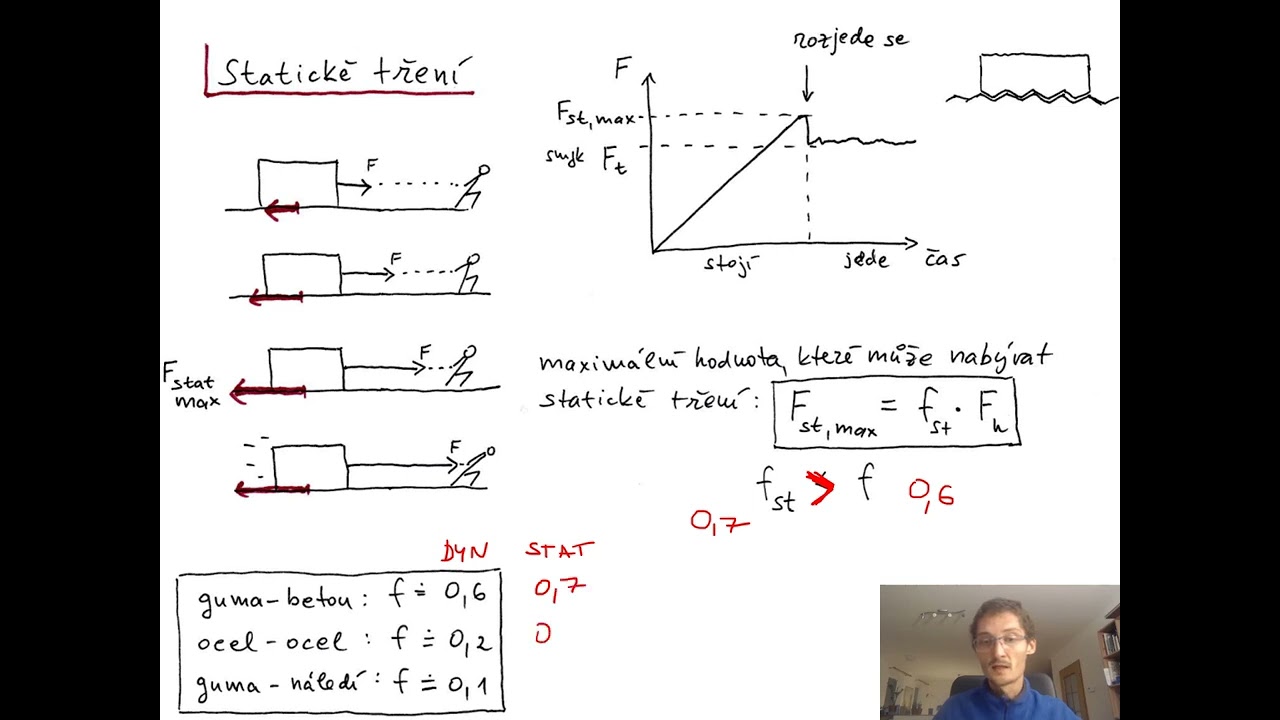 Statické tření
F
F
F
F stat max
F
rozjede se
F
F st, max
smyk F t
stojí
jede
čas
maximální hodnota, které může nabývat
statické tření: F st, max = f st · F n
f st > f
0,7
0,6
DYN STAT
guma-beton: f ≐ 0,6 0,7
ocel-ocel: f ≐ 0,2 0
guma-náledí: f ≐ 0,1